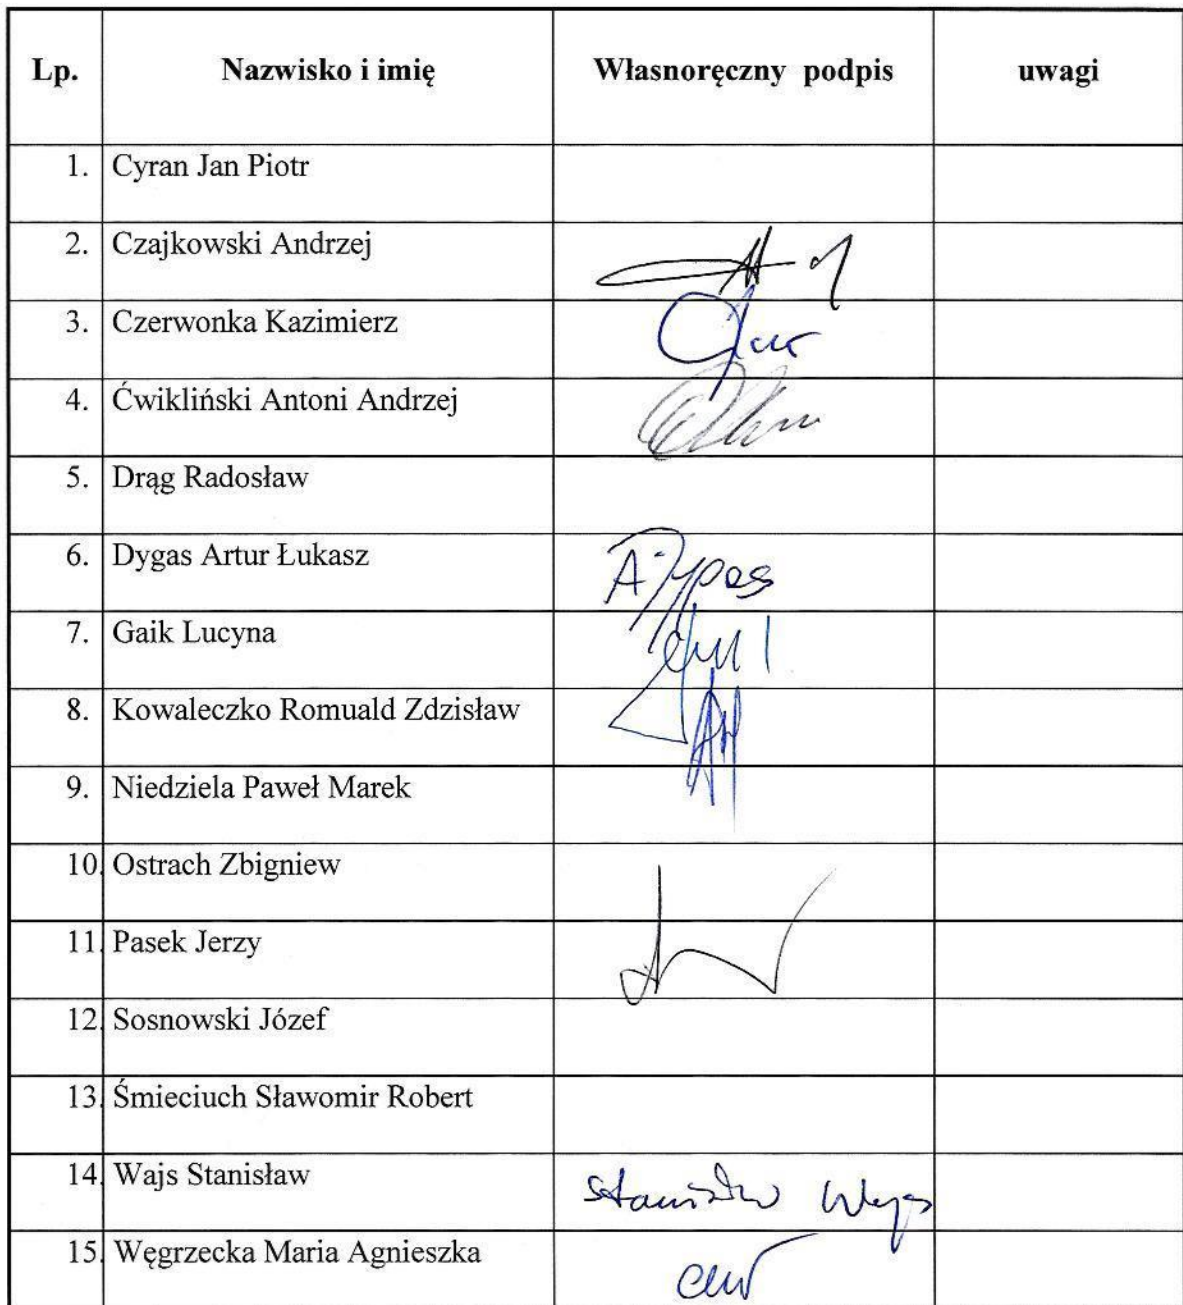 Lp. Nazwisko i imię Własnoręczny podpis uwagi
1. Cyran Jan Piotr
2. Czajkowski Andrzej
3. Czerwonka Kazimierz
4. Ćwikliński Antoni Andrzej
5. Drąg Radosław
6. Dygas Artur Łukasz
7. Gaik Lucyna
8. Kowaleczko Romuald Zdzisław
9. Niedziela Paweł Marek
10. Ostrach Zbigniew
11. Pasek Jerzy
12. Sosnowski Józef
13. Śmieciuch Sławomir Robert
14. Wajs Stanisław Stanisław Wajs
15. Węgrzecka Maria Agnieszka